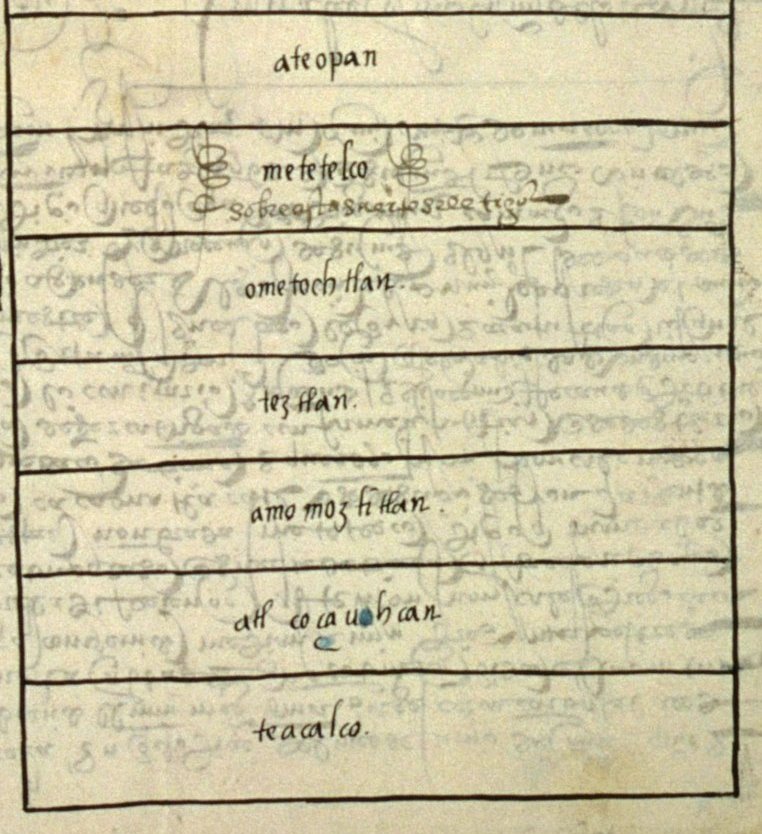 ateopan
metetelco
sobre estas
ometochtlan.
teztlan.
amomoztitlan.
atl cocauohcan
teacalco.